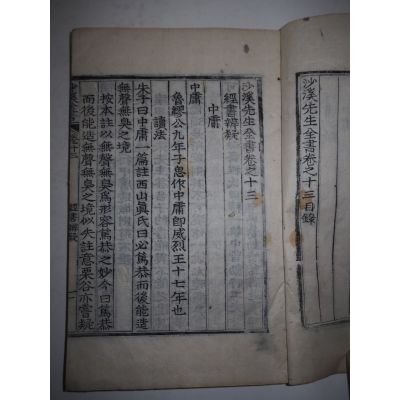 沙溪先生全書卷之十三目錄
沙溪先生全書卷之十三
經書辨疑
中庸
中庸
魯繆公九年子思作中庸卽威烈王十七年也
讀法
朱子曰中庸一篇註西山眞氏曰必篤恭而後能造
無聲無臭之境
按本註以無聲無臭爲形容篤恭之妙今曰篤恭
而後能造無聲無臭之境似失註意栗谷亦嘗疑
經書辨疑